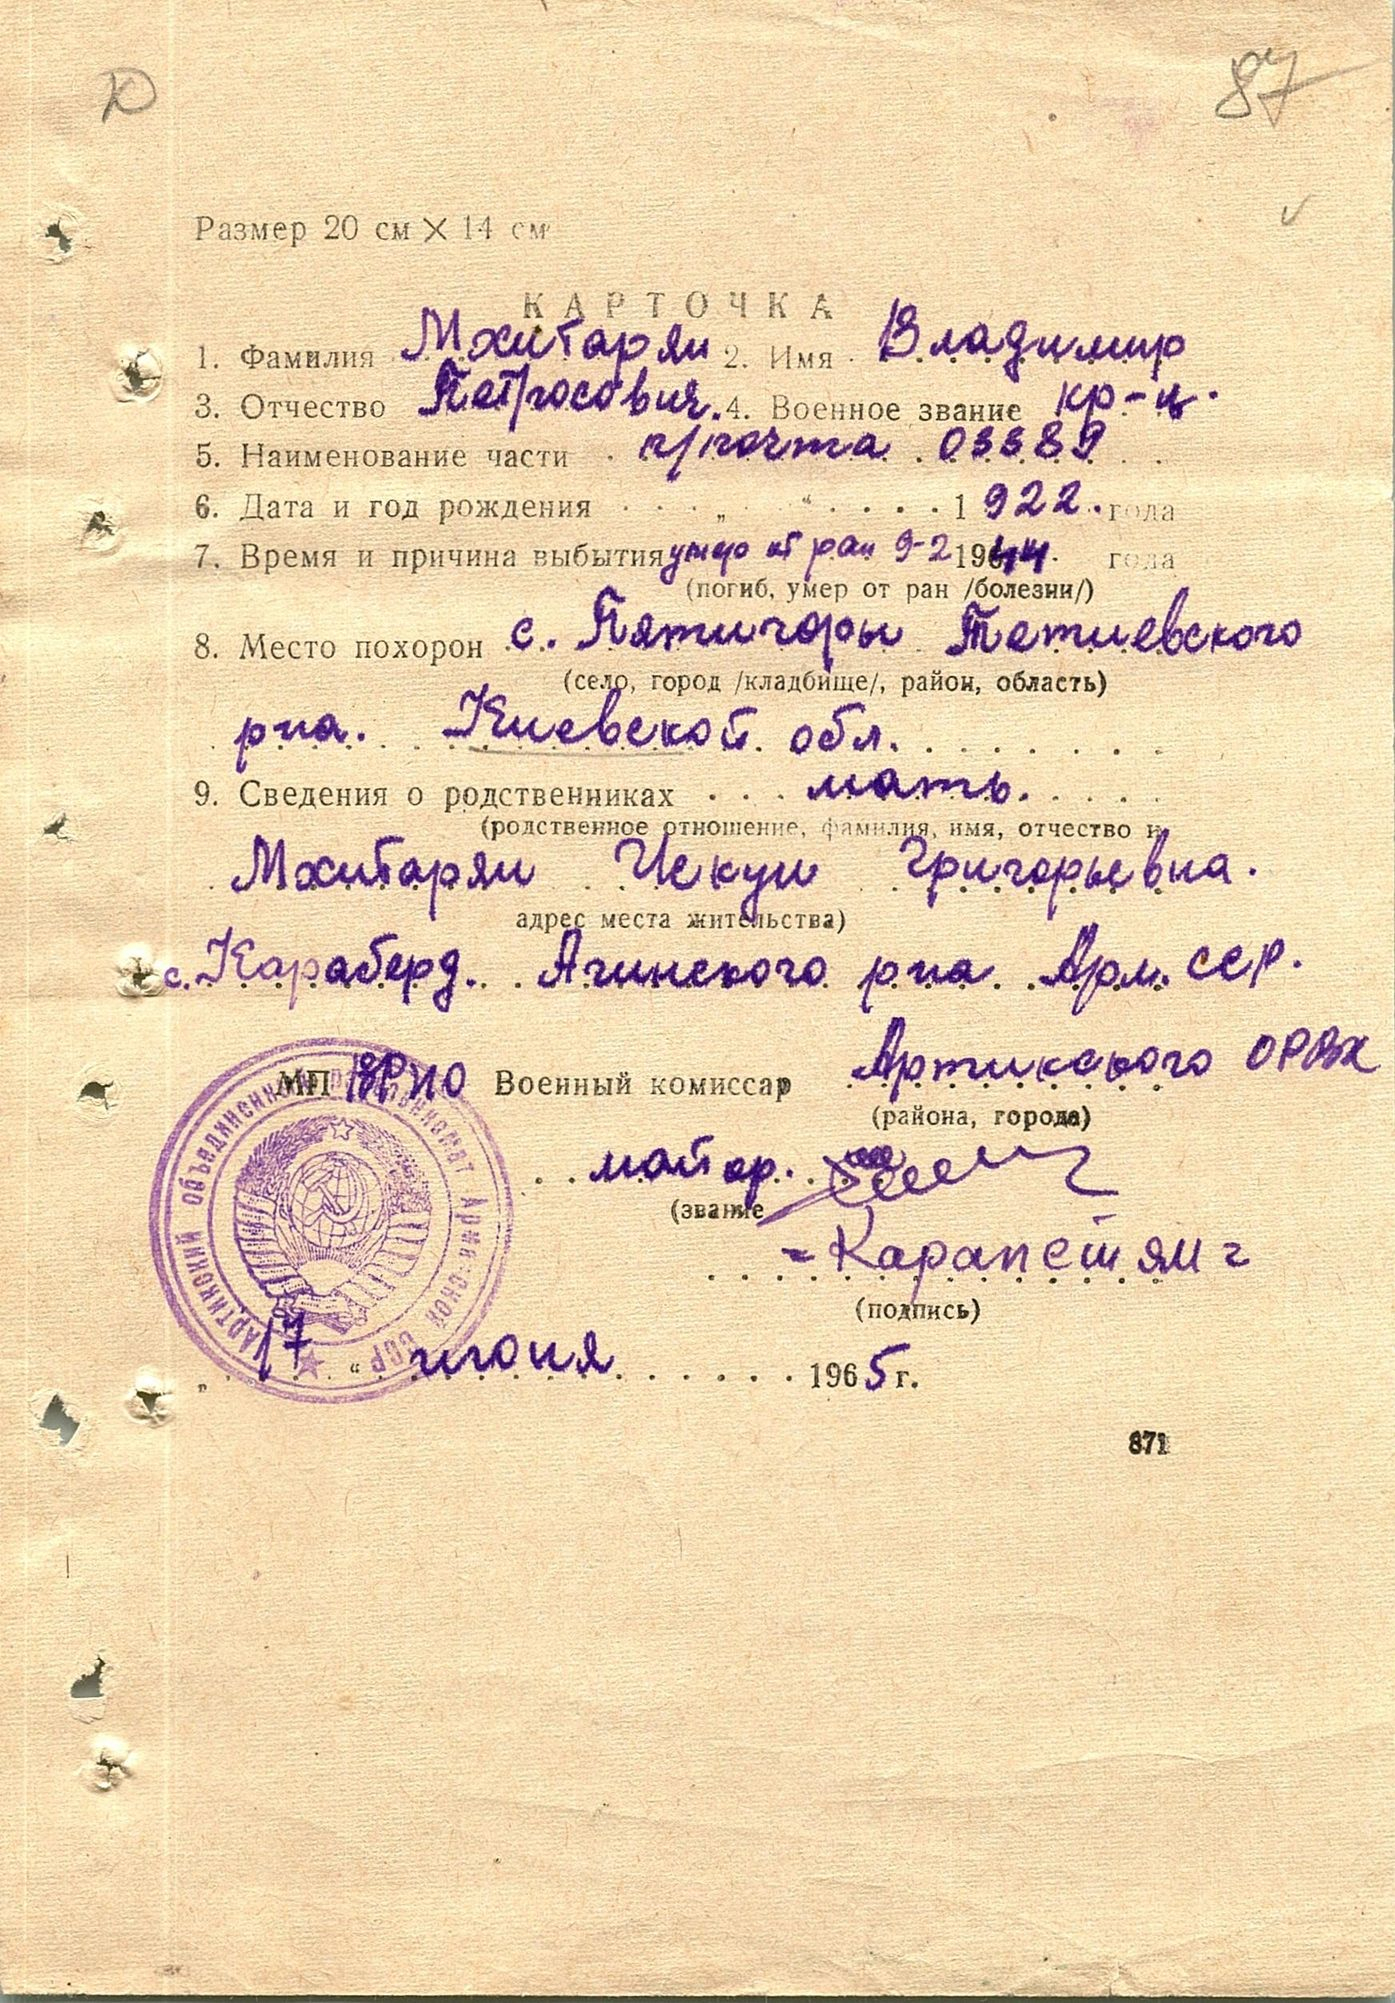 Ю 87
Размер 20 см × 14 см
КАРТОЧКА
1. Фамилия Мхитарян 2. Имя Владимир
3. Отчество Петросович. 4. Военное звание кр-ц.
5. Наименование части п/почта 03389
6. Дата и год рождения „ “ 1922. года
7. Время и причина выбытия умер от ран 9-2 1944. года
(погиб, умер от ран /болезни/)
8. Место похорон с. Пятигоры Тетиевского
(село, город /кладбище/, район, область)
рна. Киевской обл.
9. Сведения о родственниках мать.
(родственное отношение, фамилия, имя, отчество и
Мхитарян Искуи Григорьевна.
адрес места жительства)
с. Караберд. Агинского рна Арм. ССР.
МП ВРИО Военный комиссар Артикского ОРВК
(района, города)
майор.
(звание
- Карапетян -
(подпись)
„17“ июня 1965 г.
871
Артикский объединенный райвоенкомат Армянской ССР